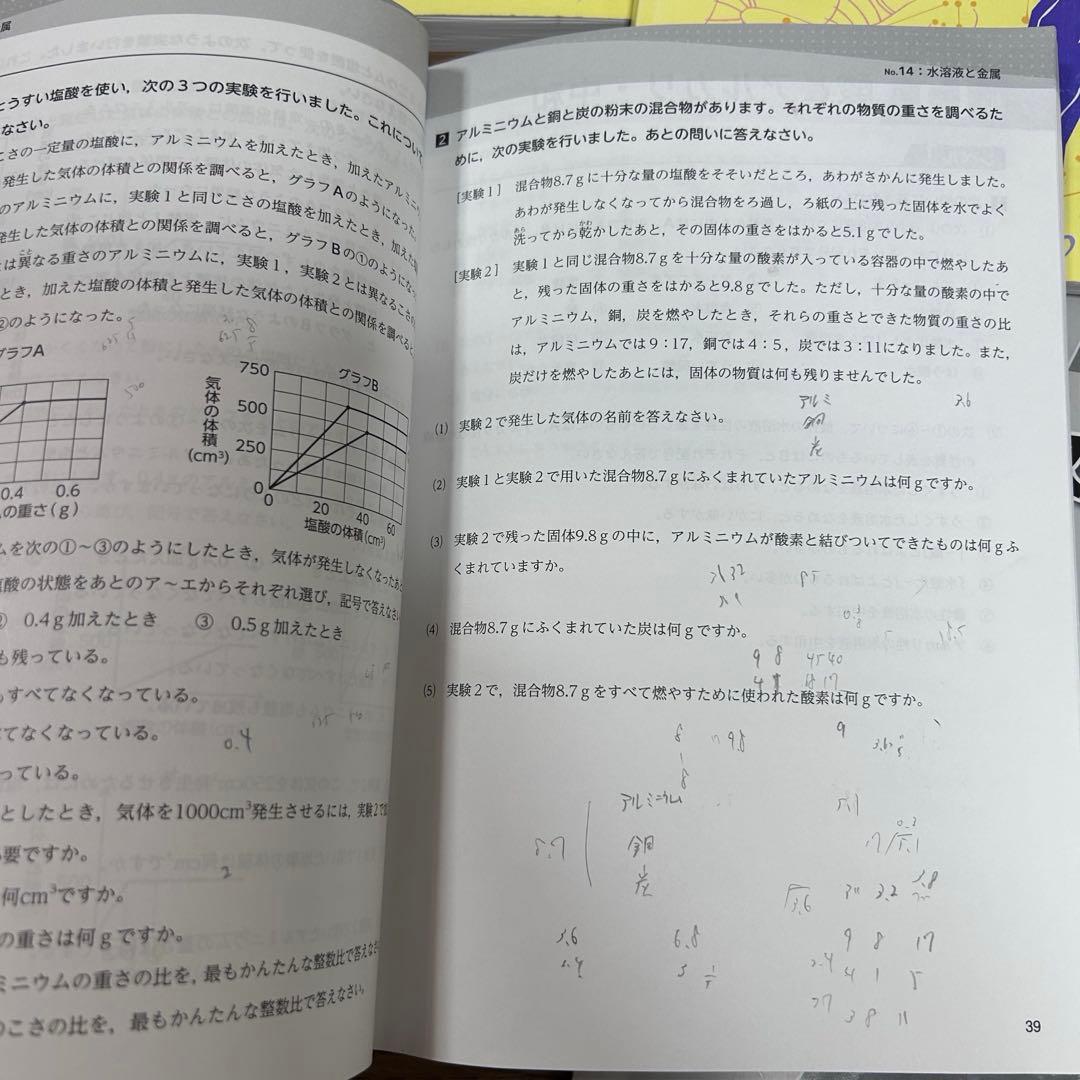 属
とうすい塩酸を使い，次の３つの実験を行いました。これについて
なさい。
こさの一定量の塩酸に，アルミニウムを加えたとき，加えたアルミニ
発生した気体の体積との関係を調べると，グラフＡのようになった。
のアルミニウムに，実験１と同じこさの塩酸を加えたとき，加えた塩
発生した気体の体積との関係を調べると，グラフＢの①のようになっ
は異なる重さのアルミニウムに，実験１，実験２とは異なるこさの
とき，加えた塩酸の体積と発生した気体の体積との関係を調べると
②のようになった。
グラフA
0.4 0.6
の重さ(g)
グラフB
気体の体積
(cm³)
750
500
250
0
0 20 40 60
塩酸の体積(cm³)
ムを次の①～③のようにしたとき，気体が発生しなくなったあと
塩酸の状態をあとのア～エからそれぞれ選び，記号で答えなさい
② 0.4ｇ加えたとき ③ 0.5ｇ加えたとき
も残っている。
もすべてなくなっている。
べてなくなっている。
0.4
っている。
としたとき，気体を1000cm³発生させるには，実験２で
必要ですか。
2
何cm³ですか。
の重さは何ｇですか。
ミニウムの重さの比を，最もかんたんな整数比で答えなさい
のこさの比を，最もかんたんな整数比で答えなさい。
No.14：水溶液と金属
2 アルミニウムと銅と炭の粉末の混合物があります。それぞれの物質の重さを調べるた
めに，次の実験を行いました。あとの問いに答えなさい。
［実験１］ 混合物8.7ｇに十分な量の塩酸をそそいだところ，あわがさかんに発生しました。
あわが発生しなくなってから混合物をろ過し，ろ紙の上に残った固体を水でよく
あら かわ
洗ってから乾かしたあと，その固体の重さをはかると5.1ｇでした。
［実験２］ 実験１と同じ混合物8.7ｇを十分な量の酸素が入っている容器の中で燃やしたあ
と，残った固体の重さをはかると9.8ｇでした。ただし，十分な量の酸素の中で
アルミニウム，銅，炭を燃やしたとき，それらの重さとできた物質の重さの比
は，アルミニウムでは９：17，銅では４：５，炭では３：11になりました。また，
炭だけを燃やしたあとには，固体の物質は何も残りませんでした。
アルミ 3.6
銅
炭
(1) 実験２で発生した気体の名前を答えなさい。
(2) 実験１と実験２で用いた混合物8.7ｇにふくまれていたアルミニウムは何ｇですか。
(3) 実験２で残った固体9.8ｇの中に，アルミニウムが酸素と結びついてできたものは何ｇふ
くまれていますか。
(4) 混合物8.7ｇにふくまれていた炭は何ｇですか。
9 8 45 40
(5) 実験２で，混合物8.7ｇをすべて燃やすために使われた酸素は何ｇですか。
8 9.8 9
8
アルミニウム 5.1
8.7 銅
炭
3.6 3.2
3.6 6.8 9 8 17
2.4 4 1 5
2.7 3 8 11
39